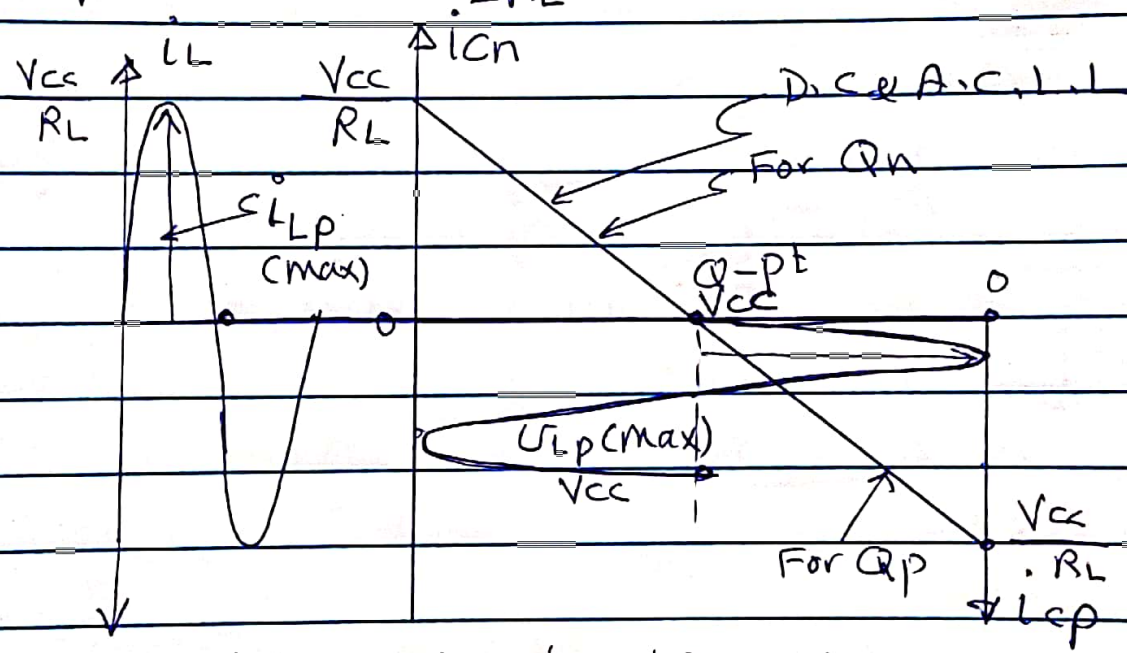 iL
iCn
VCC
RL
VCC
RL
D.C & A.C.L.L
For Qn
iLp
(max)
Q-pt
VCC
0
0
VLp(max)
VCC
For Qp
VCC
RL
iCp